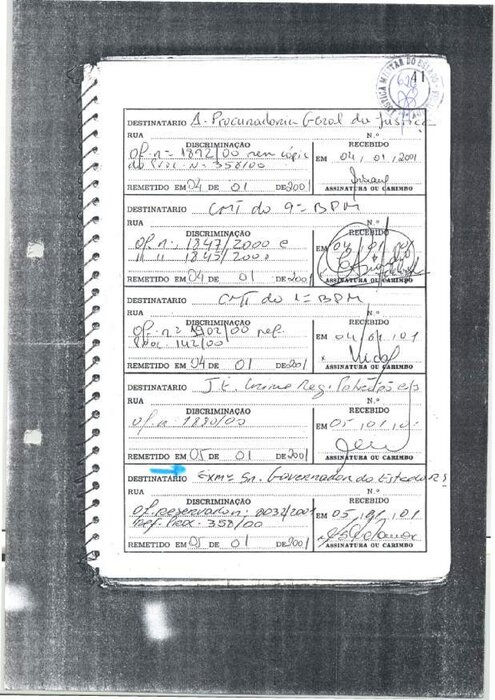 41
DESTINATÁRIO A. Procuradoria Geral da Justiça
RUA N.º
DISCRIMINAÇÃO RECEBIDO
Of. nº 1892/00 cópia EM 04,01,2001
do Proc. Nº 358/00
REMETIDO EM 04 DE 01 DE 2001 ASSINATURA OU CARIMBO
DESTINATÁRIO CMT do 9º BPM
RUA N.º
DISCRIMINAÇÃO RECEBIDO
Of. nº: 1847/2000 e EM 04,01,01
" " 1845/2000
REMETIDO EM 04 DE 01 DE 2001 ASSINATURA OU CARIMBO
DESTINATÁRIO CMT do 1º BPM
RUA N.º
DISCRIMINAÇÃO RECEBIDO
Of. nº 1902/00 ref. EM 04,01,01
Proc. 142/00
REMETIDO EM 04 DE 01 DE 2001 ASSINATURA OU CARIMBO
DESTINATÁRIO Crime Reg.
RUA N.º
DISCRIMINAÇÃO RECEBIDO
Of. nº 1880/00 EM 05,01,01
REMETIDO EM 05 DE 01 DE 2001 ASSINATURA OU CARIMBO
DESTINATÁRIO Exmº Sr. Governador do Estado RS
RUA N.º
DISCRIMINAÇÃO RECEBIDO
Of. reservado nº: 0032/2001 EM 05,01,01
Ref. Proc. 358/00
REMETIDO EM 05 DE 01 DE 2001 ASSINATURA OU CARIMBO